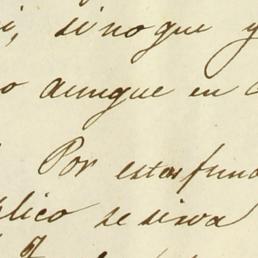 i, sino que y
o aunque en
Por estas fund
plico se sirva